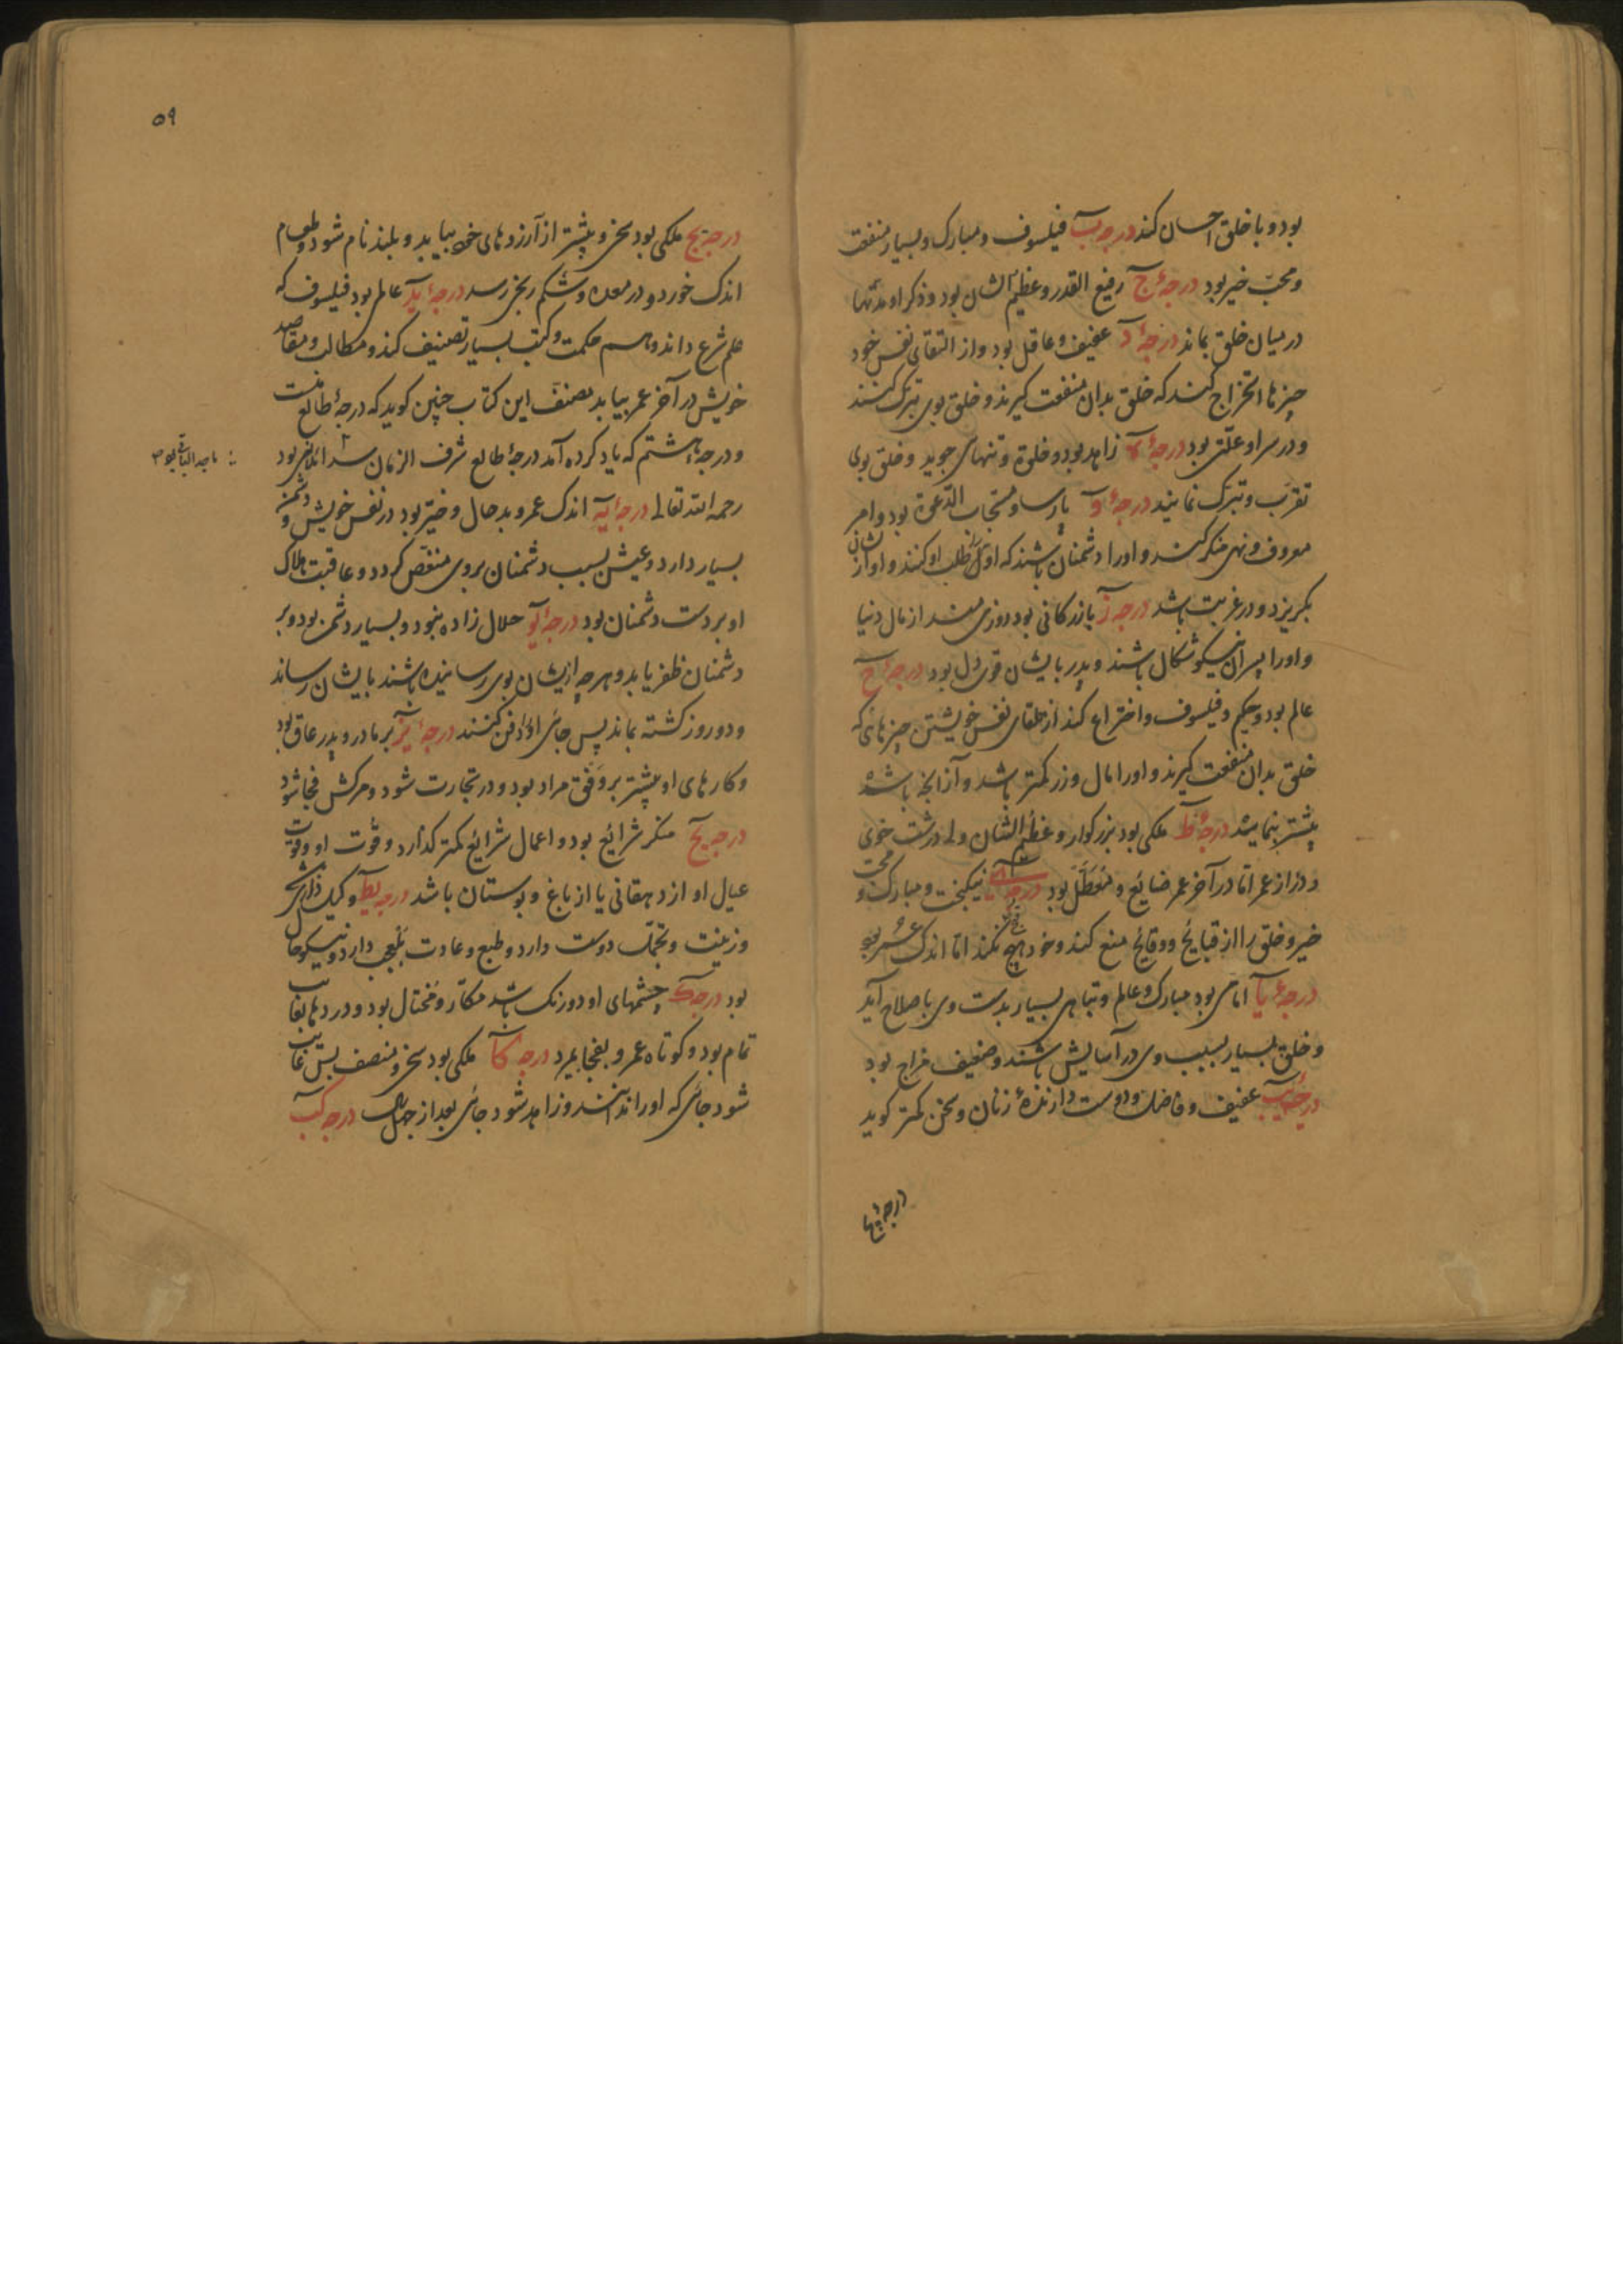 بود و با خلق احسان کند درجهٔ ب فیلسوف و مبارک و بسیار منفعت
و محبّ خیر بود درجهٔ ج رفیع القدر و عظیم الشان بود و ذکر او مدّتها
در میان خلق بماند درجهٔ د عفیف و عاقل بود و از القای نفس خود
چیزها استخراج کند که خلق بدان منفعت گیرند و خلق بوی تبرک کنند
و در سر او علّتی بود درجهٔ ه زاهد بود و خلوة و تنهای جوید و خلق بوی
تقرّب و تبرّک نمایند درجهٔ و پارسا و مستجاب الدّعوة بود و امر
معروف و نهی منکر کند و او را دشمنان باشند که اوّل طلب او کنند و او از ایشان
بکریزد و در غربت باشد درجهٔ ز بازرکانی بود روزی مند از مال دنیا
و او را پسران نیکو شکال باشند و پدر بایشان قوی دل بود درجهٔ ح
عالم بود و حکیم و فیلسوف و اختراع کند از تلقای نفس خویشتن چیزهای که
خلق بدان منفعت کیرند و او را مال و زر کمتر باشد و آزانچه باشد
پیشتر بنماید درجهٔ ط ملکی بود بزرکوار و عظیم الشان ولی درشت خوی
و دراز عمر امّا در آخر عمر ضایع و معطّل بود درجهٔ ی نیکبخت و مبارک و محبّ
خیر و خلق را از قبایح و وقایح منع کند و خود هیچ نکند امّا اندک عمر بود
درجهٔ یا امامی بود مبارک و عالم و تباهی بسیار بدست وی باصلاح آید
و خلق بسیار بسبب وی در آسایش باشند و ضعیف مزاج بود
درجهٔ یب عفیف و فاضل و دوست دارندهٔ زنان و سخن کمتر کوید
درجهٔ یج
۵۹
درجهٔ یج ملکی بود سخی و پیشتر از آرزوهای خود بیابد و بلند نام شود و طعام
اندک خورد و در معده و شکم رنجی رسد درجهٔ ید عالم بود فیلسوف که
علم شرع داند و هم حکمت و کتب بسیار تصنیف کند و مطالب و مقاصد
خویش در آخر عمر بیابد مصنف این کتاب چنین کوید که درجهٔ طالع منست
و درجهٔ هشتم که یاد کرده آمد درجهٔ طالع شرف الزمان بود
رحمه الله تعالی درجهٔ یه اندک عمر و بد حال و خیّر بود در نفس خویش و دشمن
بسیار دارد و عیش بسبب دشمنان بر وی منغّص کردد و عاقبت هلاک
او بر دست دشمنان بود درجهٔ یو حلال زاده نبود و بسیار دشمن بود و بر
دشمنان ظفر یابد و هر چه ازیشان بوی رسانیده باشند بایشان رساند
و دو روز کشته بماند پس جای او را دفن کنند درجهٔ یز بر مادر و پدر عاق بود
و کارهای او پیشتر بر وفق مراد بود و در تجارت شود و مرکش فجا شود
درجهٔ یح منکر شرائع بود و اعمال شرائع کمتر کذارد و قوت او و قوت
عیال او از دهقانی یا از باغ و بوستان باشد درجهٔ یط
و زینت و تجمّل دوست دارد و طبع و عادت بلعجب دارد و نیکو حال
بود درجهٔ ک چشمهای او دو رنک باشد مکّار و مختال بود و در دها بغایت
تمام بود و کوتاه عمر و بفجا بمیرد درجهٔ کا ملکی بود سخی و منصف پس غایب
شود جای که او را نداننـد و زاهد شود جای بعد از چهل سال درجهٔ کب